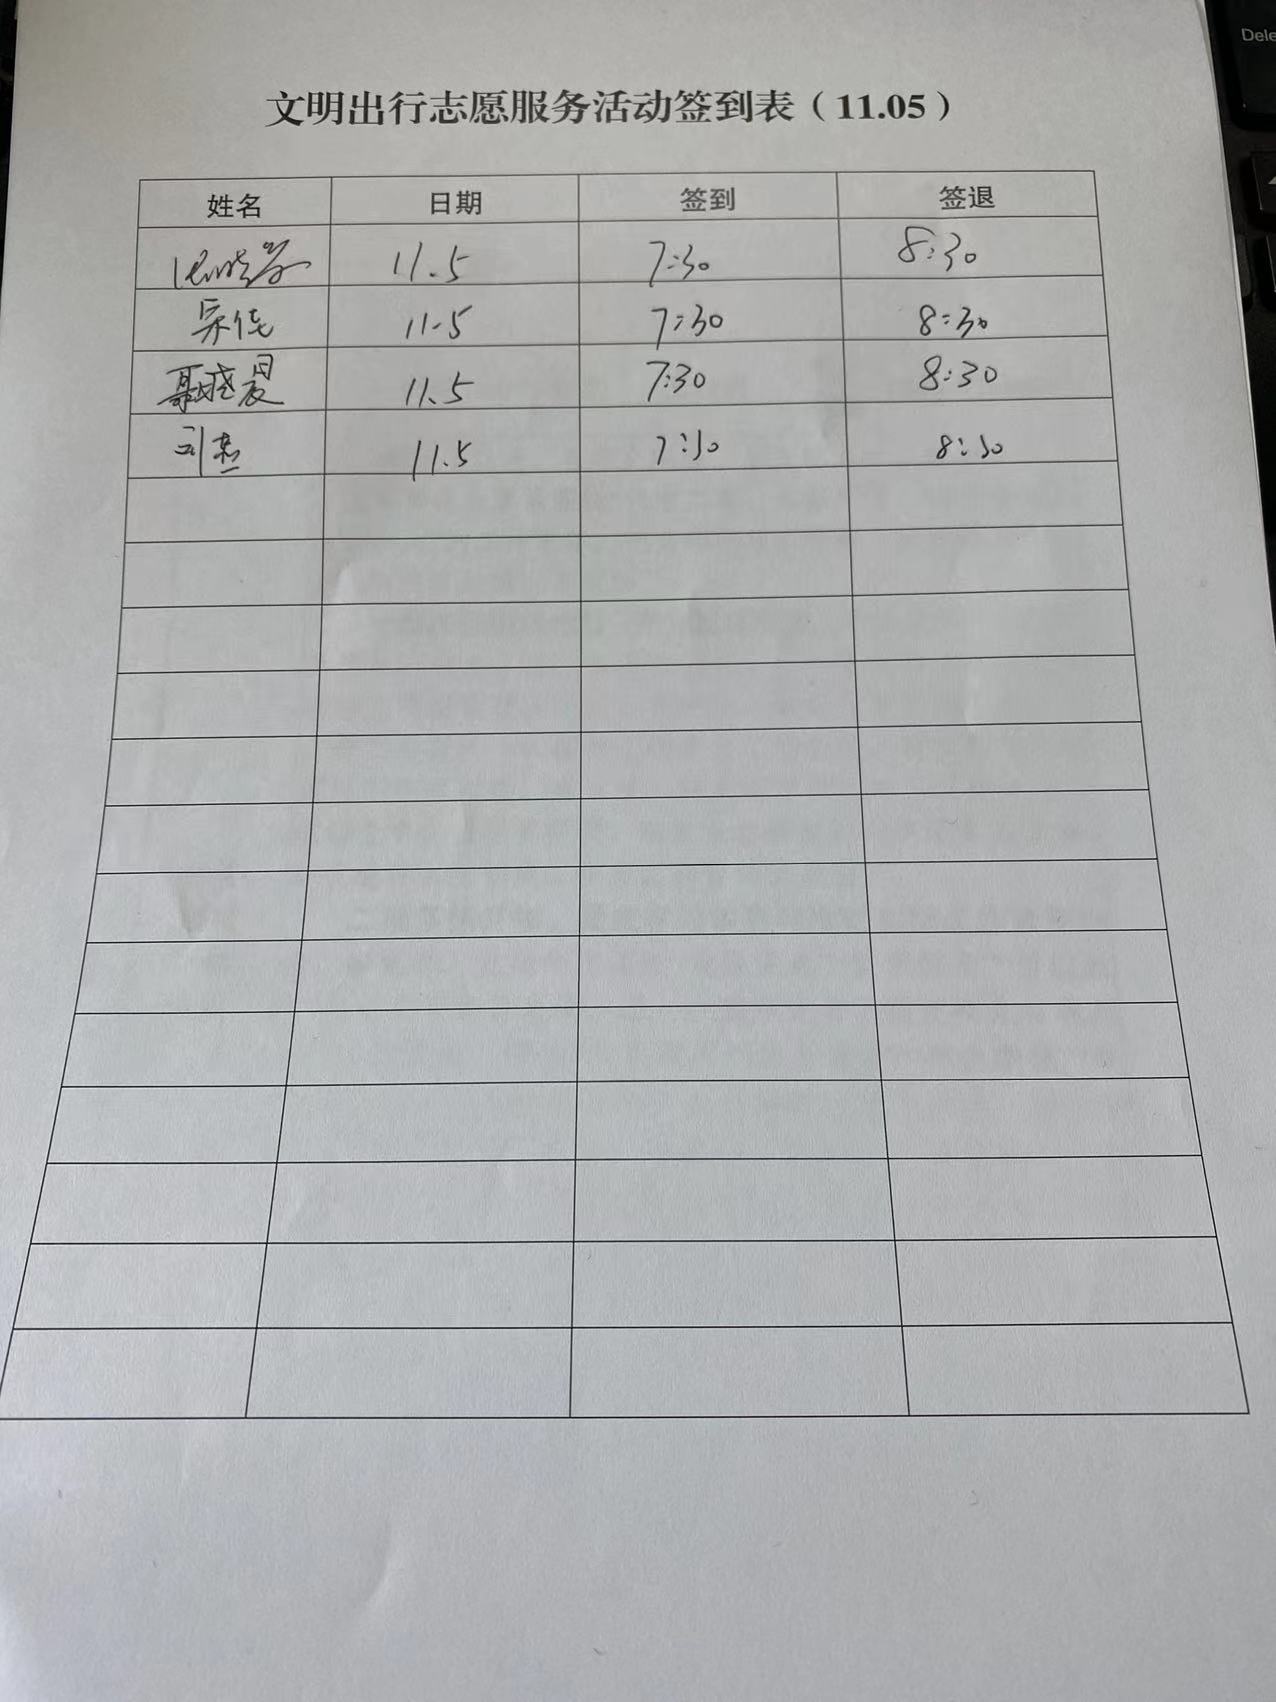 Dele
文明出行志愿服务活动签到表（11.05）
姓名 日期 签到 签退
11.5 7:30 8:30
宋佳 11.5 7:30 8:30
聂晓晨 11.5 7:30 8:30
刘杰 11.5 7:30 8:30